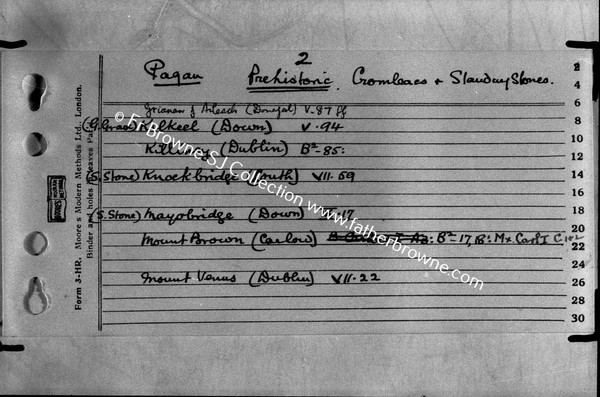 2
Pagan Prehistoric Cromleacs & Standing Stones.
Grianan of Aileach (Donegal) V-87 ff
(G. Grave) Kilkeel (Down) V.94
Killiney (Dublin) B²-85:
(S. Stone) Knockbridge (Louth) VII.59
(S. Stone) Mayobridge (Down) 17
Mount Brown (Carlow) : B²-17, 18: Mx Carl I
Mount Venus (Dublin) VII.22
2
4
6
8
10
12
14
16
18
20
22
24
26
28
30
Form 3-HR. Moore's Modern Methods Ltd., London.
Binder and holes Leaves Pat
© Fr Browne SJ Collection www.fatherbrowne.com